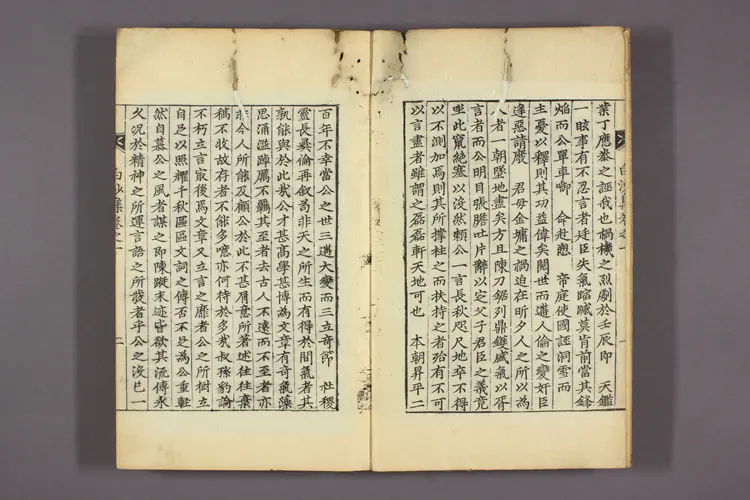 白沙集卷之一　一
業丁應泰之誣我也禍機之烈劇於壬辰即　天鑑
一眩事有不忍言者廷臣失氣踖踧莫肯前當其鋒
焰而公單車啣　命赴愬　帝庭使國誣洞雪而
主憂以釋則其功益偉矣閱世而遭人倫之變奸臣
逢惡請廢　君母金墉之禍迫在昕夕人之所以為
人者一朝墜地盡矣方且陳刀鋸列鼎鑊威氣以脅
言者而公明目張膽吐片辭以定父子君臣之義竟
坐此竄絶塞以沒然賴公一言長秋咫尺地卒不得
以不測加焉則其所撐柱之而扶持之者殆有不可
以言盡者雖謂之磊磊軒天地可也　本朝昇平二
百年不幸當公之世三遘大變而三立奇節　社稷
靈長彛倫再叙焉非天之所生而有得於間氣者其
孰能與於此哉公才甚高學甚博為文章有奇氣藻
思涌溢踔厲不羈其至者去古人不遠而不至者亦
非今人所能及顧公於此不甚屑意所著述往往棄
稿不收故存者不能多噫亦何待於多哉叔孫豹論
不朽立言㝡後焉文章又立言之靡者公之所樹立
自足以照耀千秋區區文詞之傳否不足為公重輕
然自慕公之風者謀之即陳蹤末迹皆欲其流傳永
久况於精神之所運言語之所載者乎公之沒已一
白沙集卷之一　二